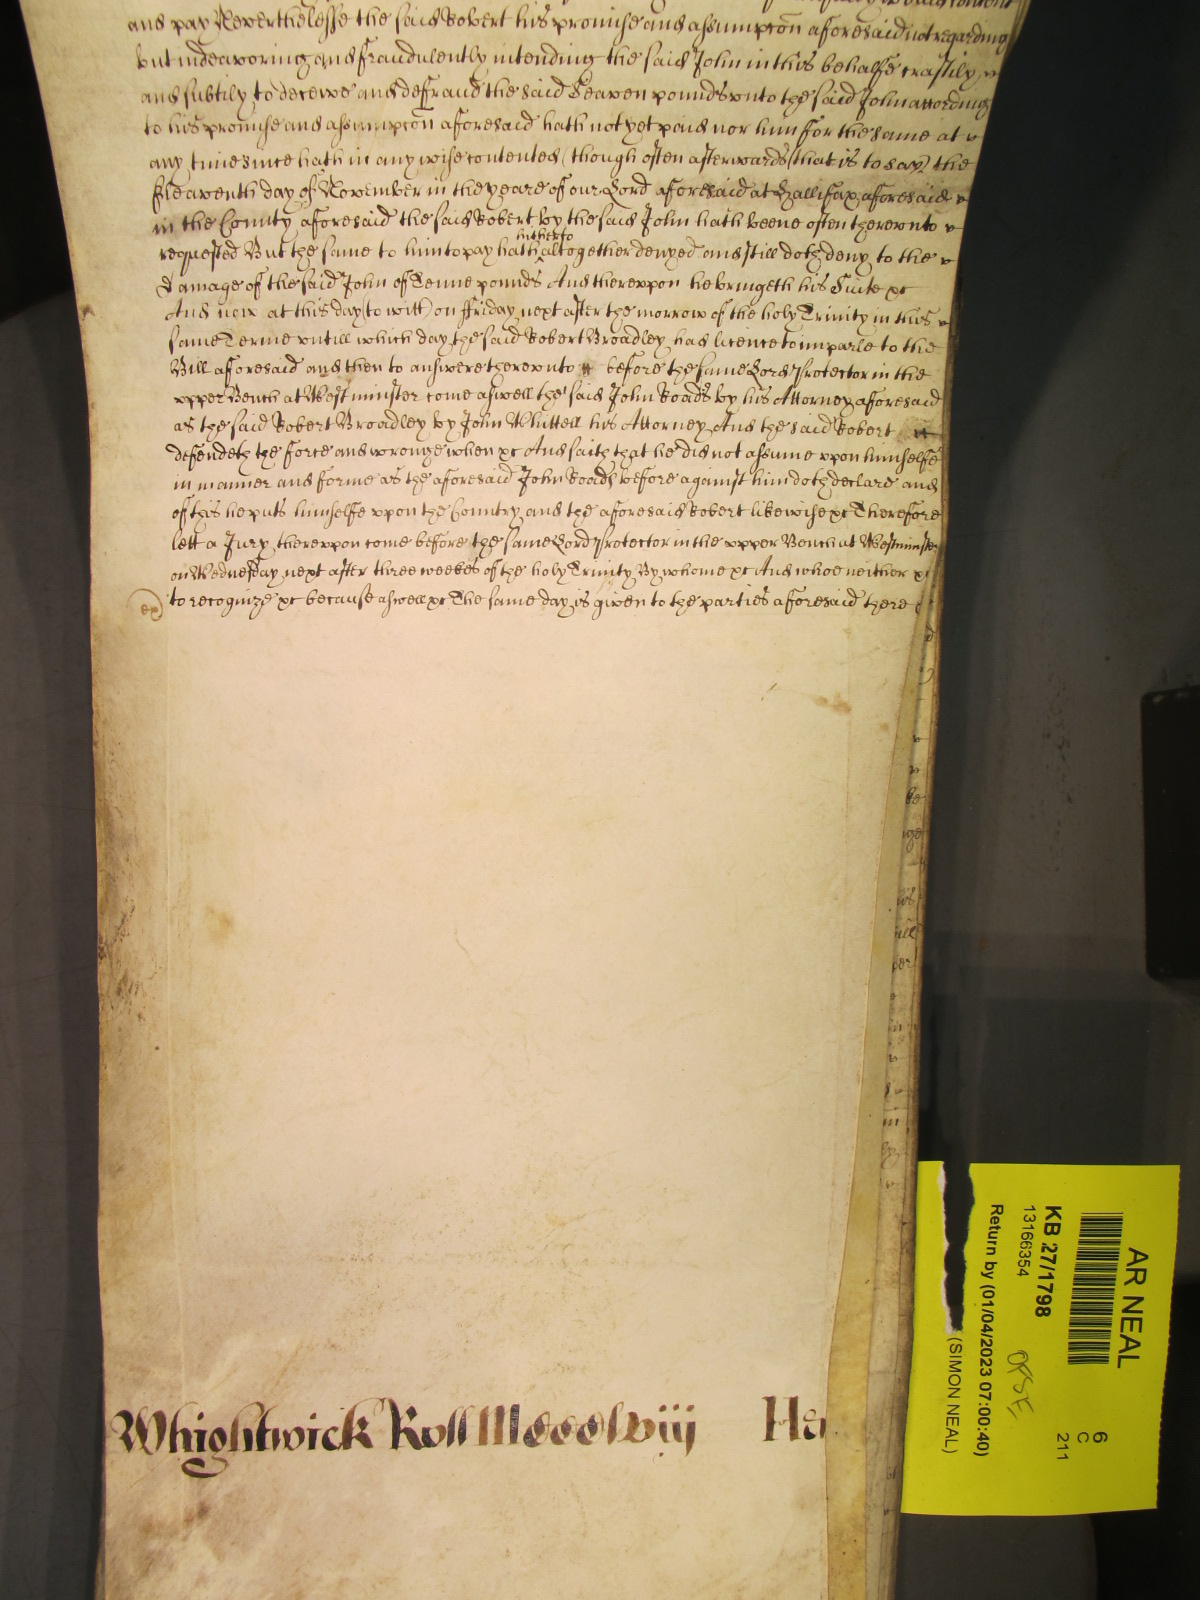 and pay Neverthelesse the said Robert his promise and assumpcon aforesaid not regarding
but indeavoring and fraudulently intending the said John in this behalfe craftily
and subtily to deceive and deffraud the said Seaven pounds unto the said John according
to his promise and assumpcon aforesaid hath not yet paid nor him for the same at
any time since hath in any wise contented (though often afterwards (that is to say) the
Eleaventh day of November in the yeare of our Lord aforesaid at Hallifax aforesaid
in the County aforesaid the said Robert by the said John hath beene often thereunto
requested But the same to him to pay hath hitherto altogether denyed and still doth deny to the
damage of the said John of Tenne pounds And thereupon he bringeth his Suite &c
And now at this day (to witt) on ffriday next after the morrow of the holy Trinity in this
same Terme untill which day the said Robert Broadley has licence to imparle to the
Bill aforesaid and then to answere thereunto &c before the same Lord Protector in the
upper Bench at Westminster come aswell the said John Roads by his Attorney aforesaid
as the said Robert Broadley by John Whittell his Attorney And the said Robert
defendeth the force and wronge when &c And saith that he did not assume upon himselfe
in manner and forme as the aforesaid John Roads before against him doth declare and
of this he puts himselfe upon the Country and the aforesaid Robert likewise &c Therefore
lett a Jury thereupon come before the same Lord Protector in the upper Bench at Westminster
on Wednesday next after three weekes of the holy Trinity By whome &c And whoe neither &c
to recognize &c because aswell &c The same day is given to the parties aforesaid there
Whightwick Roll Mccclviii
AR NEAL
KB 27/1798
13166354
Return by (01/04/2023 07:00:40)
(SIMON NEAL)
6
C
211